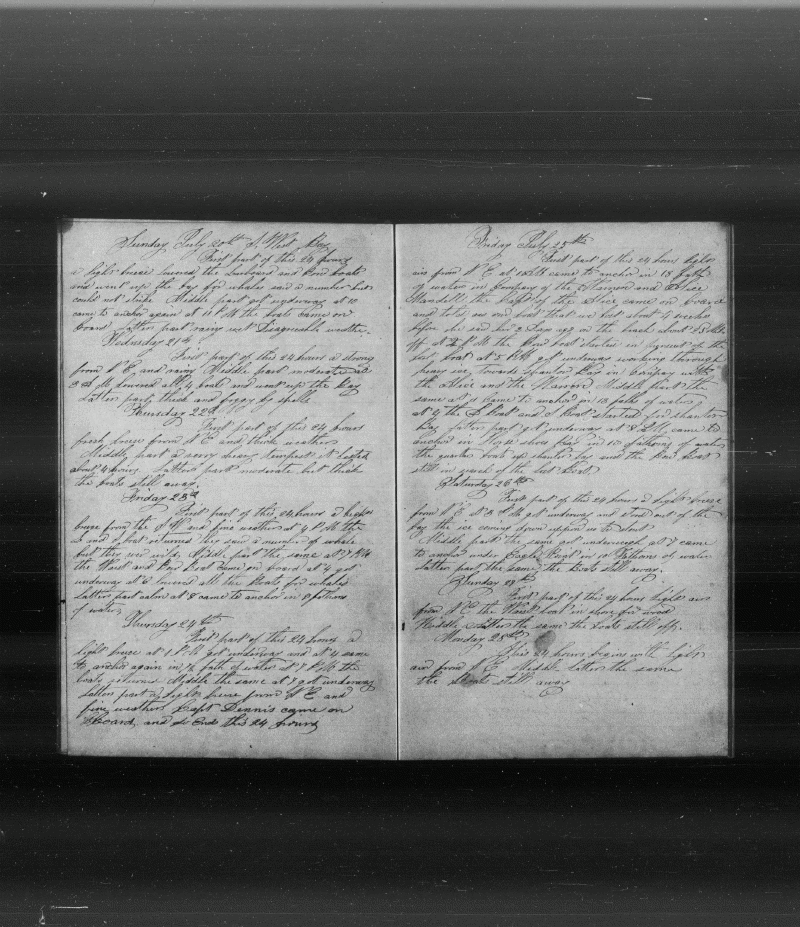 Sunday July 20th S. West Bay
First part of this 24 hours
a light breeze lowered the Larboard and Bow boats
and went up the bay for whales saw a number but
could not strike Middle part got underway at 10
came to anchor again at 11 P.M the boats came on
board Latter part rainy and Disagreeable weather.
Wednesday 21st
First part of this 24 hours a strong
from N E and rainy Middle part moderate at
3 A M lowered all 4 boats and went up the Bay
Latter part, thick and foggy by spells
Thursday 22d
First part of this 24 hours
fresh breeze from N E and thick weather
Middle part a very heavy tempest it lasted
about 4 hours Latter part moderate but thick
the boats still away.
Friday 23d
First part of this 24 hours a light
breeze from the S W and fine weather at 4 P.M the
S and L boat returned they saw a number of whale
but they were wild, Middle part the same at
the Waist and Bow boat came on board at 4 got
underway at 5 lowered all the boats for whales
Latter part calm at 8 came to anchor in 8 fathoms
of water
Thursday 24th
First part of this 24 hours a
light breeze at 1 P.M got underway and at 4 came
to anchor again in 7½ fath of water at 7 P.M the
boats returned Middle the same at 3 got underway
Latter part a light breeze from N E and
fine weather Capt Dennis came on
Board, and so Ends this 24 hours
Friday July 25th
First part of this 24 hours light
airs from N E at came to anchor in 18 fath
of water in Company of the and Alice
Mandell, the Capt of the Alice came on board
and told us our boat that we lost about 4 weeks
before he saw her 2 Days ago on the beach about 25 Miles
off at P.M the Bow boat started in pursuit of the
lost boat at 5 P.M got underway working through
heavy ice, towards Shantar Bay in Company with
the Alice and the Middle part the
same at 1 came to anchor in 13 fath of water
at 4 the S Boat and L Boat started for Shantar
Bay Latter part got underway at 8 A.M, came to
anchored in in 10 fathoms of water
the quarter boats up Shantar bay and the Bow Boat
still in search of the lost Boat
Saturday 26th
First part of the 24 hours a light breeze
from N E at 3 P.M got underway and stood out of the
bay the ice coming down upon us to
Middle part the same got underweigh at 7 came
to anchor under Eagle Point in 10 Fathoms of water
Latter part the same the Boats still away.
Sunday 27th
First part of this 24 hours light airs
from N E, the Waist boat in shore for wood
Middle & Latter the same the boats still off.
Monday 28th
This 24 hours begins with light
airs from N E Middle Latter the same
the Boats still away